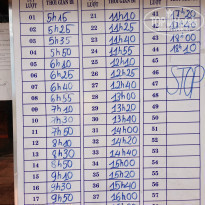 LƯỢT THỜI GIAN ĐI LƯỢT THỜI GIAN ĐI LƯỢT
01 5h15 21 11h10 17h20
02 5h25 22 11h25 42 17h40
03 5h35 23 11h40 43 18h00
04 5h50 24 11h55 44 18h10
05 6h10 25 12h10 45
06 6h25 26 12h25 46 STOP
07 6h40 27 12h40 47
08 6h55 28 12h55
09 7h10 29 13h10 49
10 7h30 30 13h30 50
11 7h50 31 14h00 51
12 8h10 32 14h20 52
13 8h30 33 14h40 53
14 8h50 34 15h00 54
15 9h10 35 15h20 55
16 9h30 36 15h40 56
17 9h50 37 16h00 57